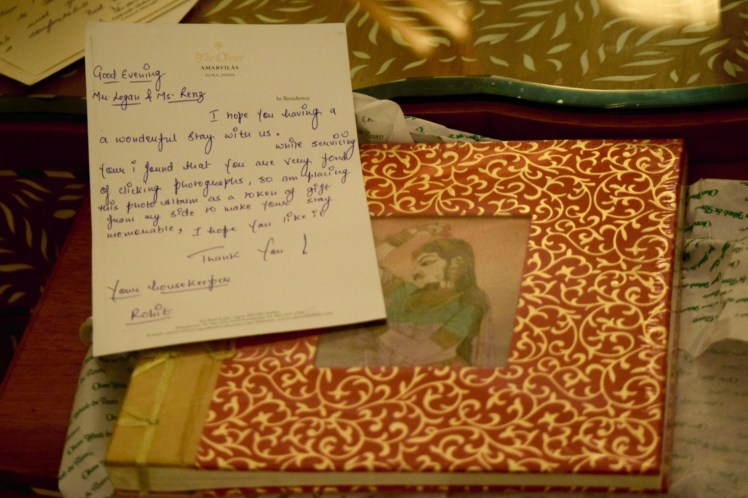 The Oberoi
AMARVILAS
AGRA, INDIA
Good Evening
Mr. Logan & Ms. Renz
In Residence
I hope you having a
a wonderful stay with us.
while servicing
your i found that you are very fond
of clicking photographs, so am placing
this photo album as a token of gift
from my side to make your stay
memorable, I hope you like it
Thank you !
Your housekeeper
Rohit